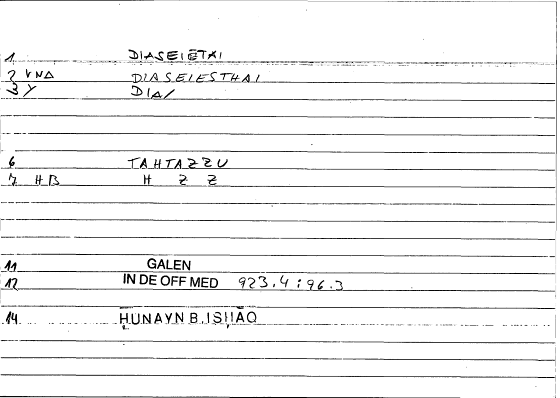 1 DIASEIĒTAI
2 VNΔ DIASEIESTHAI
3 Y DIA/
6 TAHTAZZU
7 HB H Z Z
11 GALEN
12 IN DE OFF MED 923.4 : 96.3
14 ḤUNAYN B. ISḤĀQ